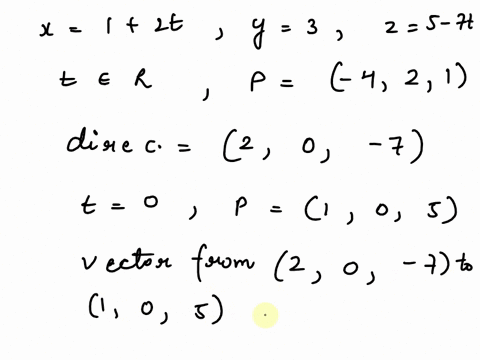 x = 1 + 2t , y = 3 , z = 5-7t
t ∈ R , P = (-4, 2, 1)
direc. = (2, 0, -7)
t = 0 , P = (1, 0, 5)
vector from (2, 0, -7) to
(1, 0, 5)